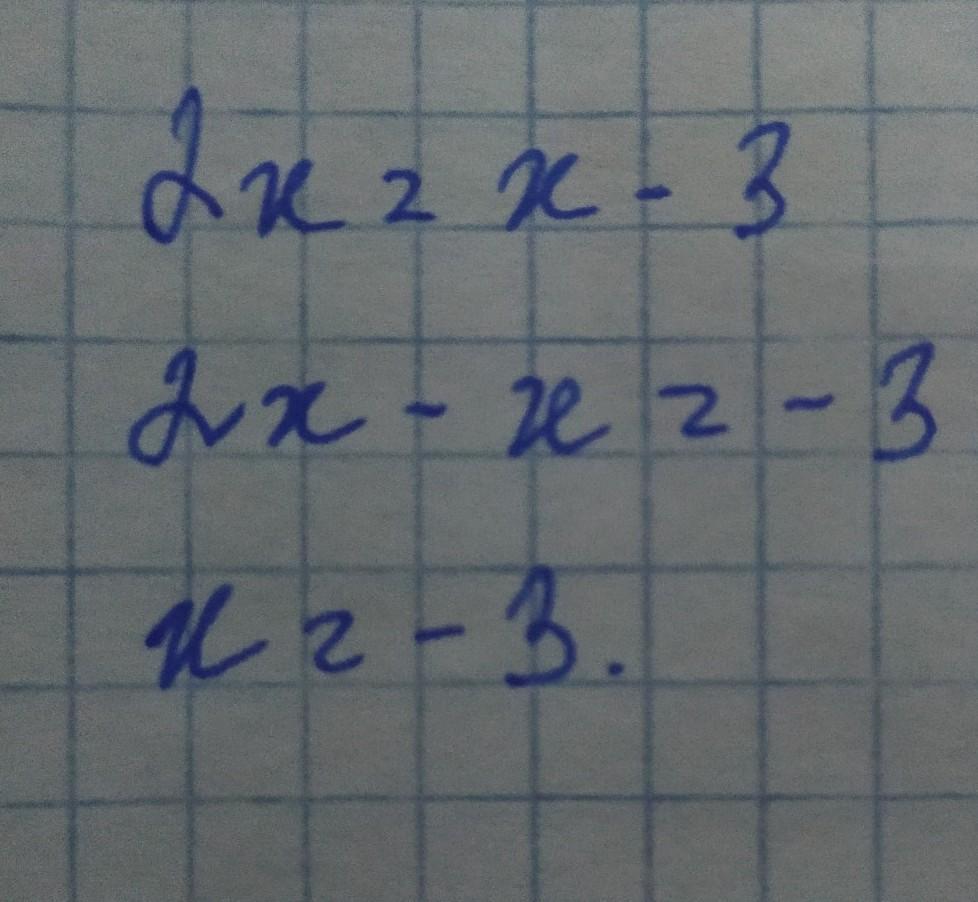 2x = x - 3
2x - x = - 3
x = - 3.